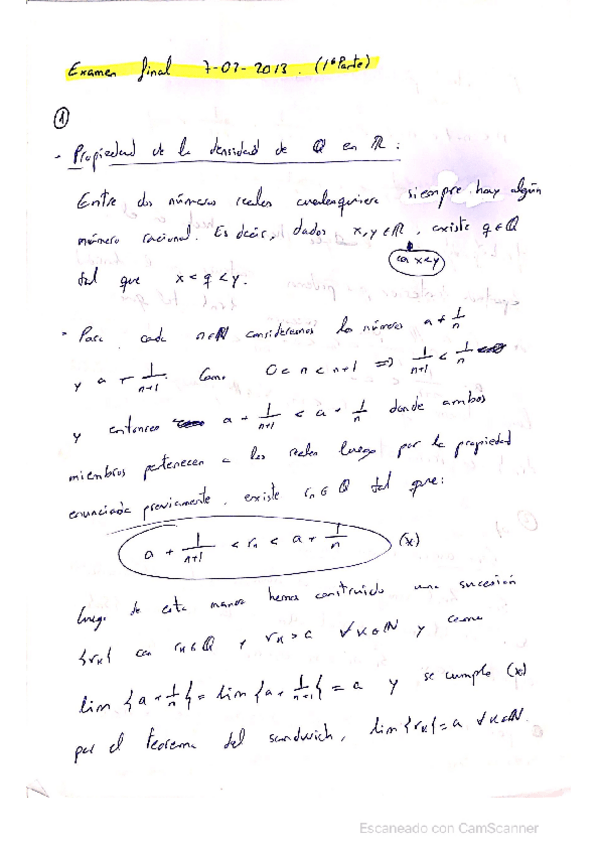 Examen final 7-02-2013. (1ª Parte)
①
· Propiedad de la densidad de ℚ en ℝ:
Entre dos números reales cualesquiera siempre hay algún
número racional. Es decir, dados x,y∈ℝ, existe q∈ℚ
con x<y
tal que x < q < y.
· Para cada n∈ℕ consideremos los números a + 1/n
y a + 1/(n+1). Como 0 < n < n+1 ⇒ 1/(n+1) < 1/n
y entonces a + 1/(n+1) < a + 1/n donde ambos
miembros pertenecen a los reales luego por la propiedad
enunciada previamente, existe rn ∈ ℚ tal que:
a + 1/(n+1) < rn < a + 1/n (x)
Luego de esta manera hemos construido una sucesión
{rn} con rn∈ℚ y rn > a ∀n∈ℕ y como
lim {a+1/n} = lim {a+1/(n+1)} = a y se cumple (x)
por el teorema del sandwich, lim {rn} = a ∀n∈ℕ.
Escaneado con CamScanner